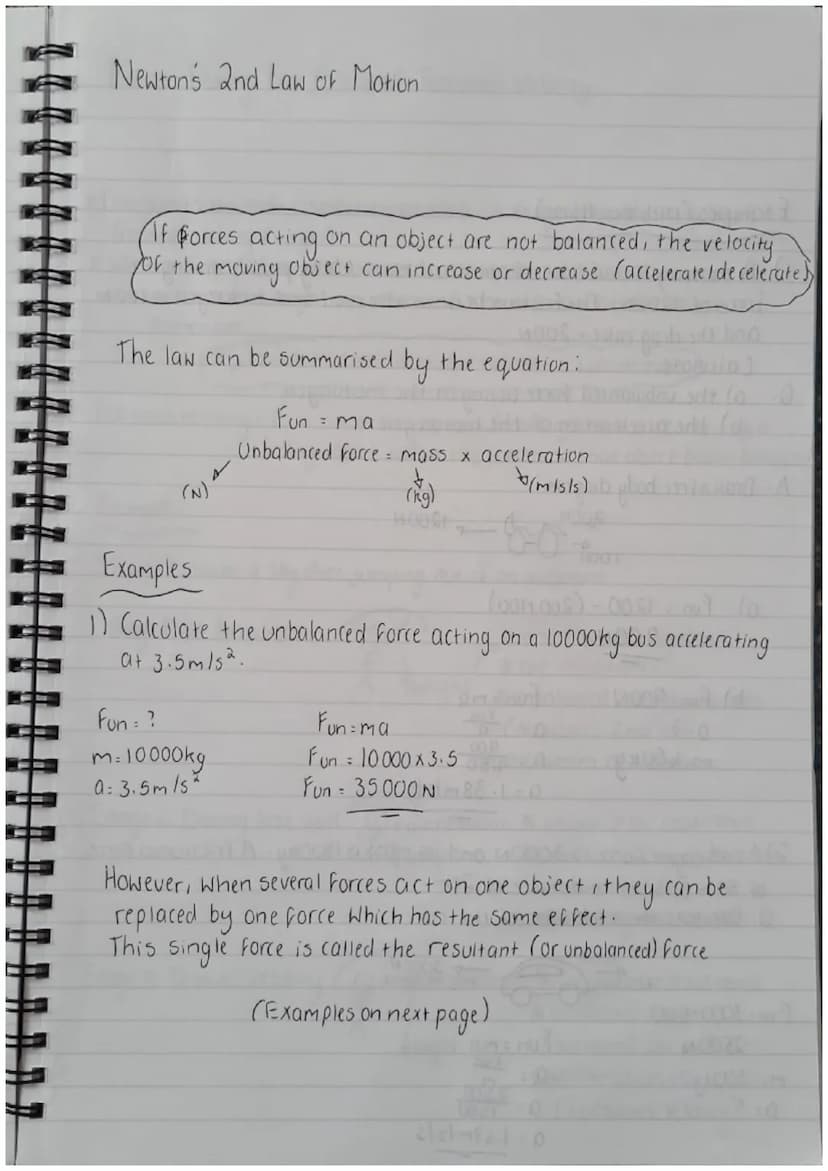 Newton's 2nd Law of Motion
If forces acting on an object are not balanced, the velocity
of the moving object can increase or decrease (accelerate/decelerate)
The law can be summarised by the equation:
Fun = ma
Unbalanced force = mass x acceleration
(N) (kg) (m/s/s)
Examples
1) Calculate the unbalanced force acting on a 10000kg bus accelerating
at 3.5m/s².
Fun = ? Fun = ma
m = 10000kg Fun = 10000 x 3.5
a = 3.5m/s² Fun = 35000N
However, when several forces act on one object, they can be
replaced by one force which has the same effect.
This single force is called the resultant (or unbalanced) force
(Examples on next page)